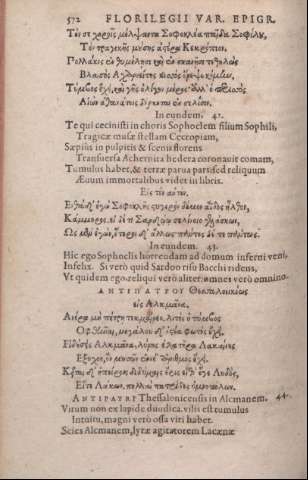 572 FLORILEGII VAR. EPIGR.
Τόν σε χοροῖς μέλψαντα Σοφοκλέα παῖδα Σοφίλου,
Τὸν τραγικῆς μούσης ἀστέρα Κεκρόπιον,
Πολλάκις ἐν θυμέλῃσι καὶ ἐν σκηνῇσι τεθηλὼς
Βλαισὸς Ἀχαρνίτης κισσὸς ἔρεψε κόμην,
Τύμβος ἔχει, καὶ γῆς ὀλίγον μέρος· ἀλλ' ὁ περισσὸς
Αἰὼν ἀθανάτοις δέρκεται ἐν σελίσιν.
In eundem. 42.
Te qui cecinisti in choris Sophoclem filium Sophili,
Tragicæ musæ stellam Cecropiam,
Sæpius in pulpitis & scenis florens
Transuersa Achernita hedera coronauit comam,
Tumulus habet, & terræ parua pars: sed reliquum
Æuum immortalibus videt in libris.
Εἰς τὸν αὐτόν.
In eundem. 43.
Hic ego Sophoclis horreadam ad domum inferni veni,
Infelix. Si verò quid Sardoo risu Bacchi ridens,
Vt quidem ego. reliqui verò aliter: omnes verò omnino.
ΑΝΤΙΠΑΤΡΟΥ Θεσσαλονικέως
εἰς Ἀλκμᾶνα.
Ἀνέρα μὴ πέτρῃ τεκμαίρεο. λιτὸς ὁ τύμβος
Ὀφθῆναι, μεγάλου δ' ὀστέα φωτὸς ἔχει.
Εἰδήσεις Ἀλκμᾶνα, λύρης ἐλατῆρα Λακαίνης
Ἔξοχον, ὃν μουσῶν ἐννέ' ἀριθμὸς ἔχει.
Κεῖται δ' ἠπείροις διδύμαις ἔρις εἴθ' ὅγε Λυδὸς,
Εἴτε Λάκων. πολλαὶ μητέρες ὑμνοπόλων.
ANTIPATRI Thessalonicensis in Alcmanem. 44.
Virum non ex lapide diiudica. vilis est tumulus
Intuitu, magni verò ossa viri habet.
Scies Alcmanem, lyræ agitatorem Lacænæ